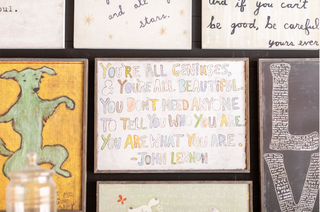 oul.
and all of
stars.
and if you can't
be good, be careful
yours ever
YOU'RE ALL GENIUSES,
& YOU'RE ALL BEAUTIFUL.
YOU DON'T NEED ANYONE
TO TELL YOU WHO YOU ARE.
YOU ARE WHAT YOU ARE.
-JOHN LENNON
L
V